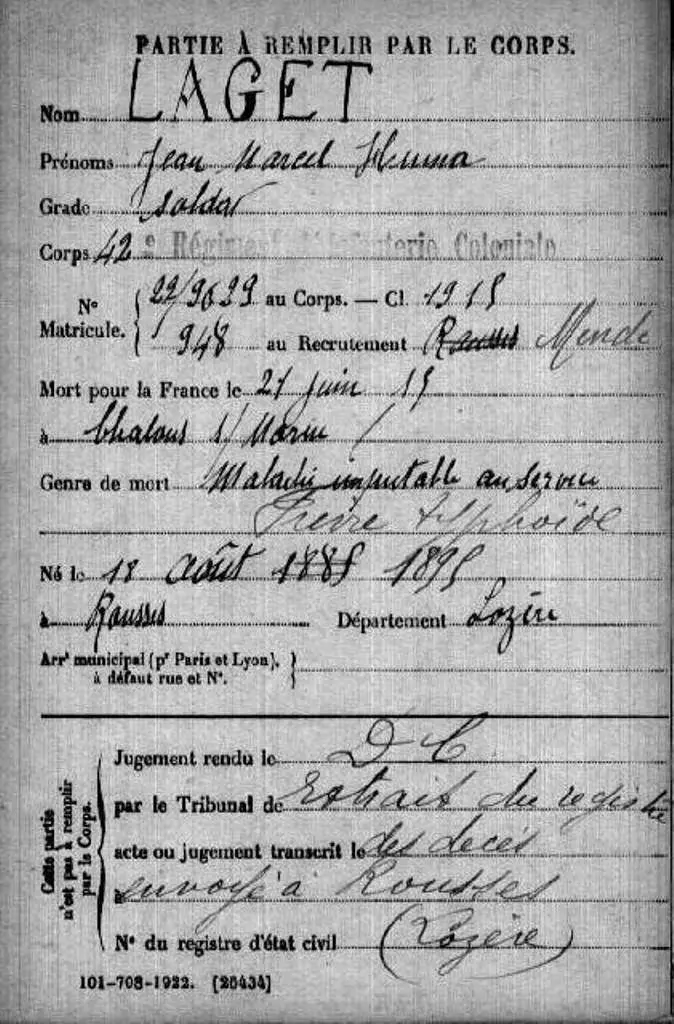 PARTIE À REMPLIR PAR LE CORPS.
Nom LAGET
Prénoms Jean Marcel
Grade soldat
Corps 42 e Régiment d'Infanterie Coloniale
No Matricule. 22/9629 au Corps. — Cl. 1915
948 au Recrutement Rousses Mende
Mort pour la France le 21 juin 15
à Chalons s/ Marne
Genre de mort Maladie imputable au service
Fièvre typhoïde
Né le 18 août 1885 1895
à Rousses Département Lozère
Arrt municipal (pr Paris et Lyon),
à défaut rue et No.
Cette partie
n'est pas à remplir
par le Corps.
Jugement rendu le D C
par le Tribunal de Extrait du registre
acte ou jugement transcrit le des décès
à envoyé à Rousses
No du registre d'état civil (Lozère)
101-708-1922. [26434]